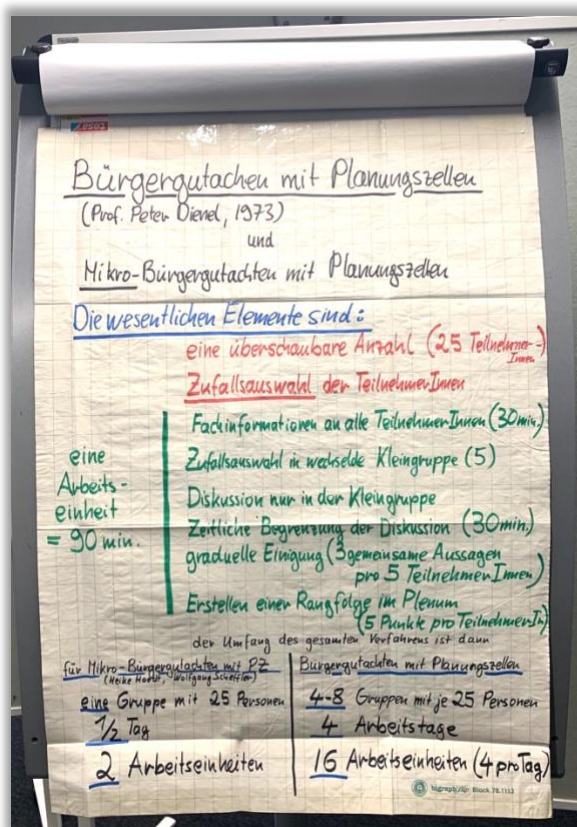 Bürgergutachen mit Planungszellen
(Prof. Peter Dienel, 1973)
und
Mikro-Bürgergutachten mit Planungszellen
Die wesentlichen Elemente sind:
eine überschaubare Anzahl (25 Teilnehmer-Innen)
Zufallsauswahl der TeilnehmerInnen
eine Arbeits-
einheit
= 90 min.
Fachinformationen an alle TeilnehmerInnen (30min.)
Zufallsauswahl in wechselde Kleingruppe (5)
Diskussion nur in der Kleingruppe
Zeitliche Begrenzung der Diskussion (30min.)
graduelle Einigung (3 gemeinsame Aussagen
pro 5 TeilnehmerInnen)
Erstellen einer Rangfolge im Plenum
(5 Punkte pro TeilnehmerIn)
der Umfang des gesamten Verfahrens ist dann
für Mikro-Bürgergutachten mit PZ
(Heike Wolfgang Scheffler)
eine Gruppe mit 25 Personen
1/2 Tag
2 Arbeitseinheiten
Bürgergutachten mit Planungszellen
4-8 Gruppen mit je 25 Personen
4 Arbeitstage
16 Arbeitseinheiten (4 pro Tag)